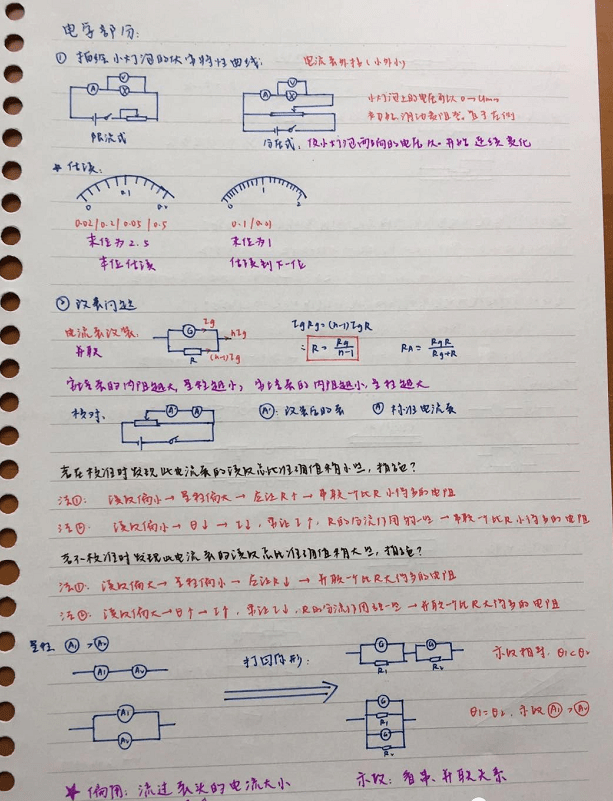 电学部份:
① 描绘小灯泡的伏安特性曲线: 电流表外接(小外小)
限流式
小灯泡上的电压可以0→Umax
分压式, 使小灯泡两端的电压从0开始连续变化
* 估读:
0 0.2
0 1 2
0.02 / 0.2 / 0.05 / 0.5 0.1 / 0.01
末位为2.5 末位为1
本位估读 估读到下一位
② 改表问题
电流表改装: Ig nIg IgRg=(n-1)IgR
并联 R (n-1)Ig ∴ R = Rg/n-1 RA = RgR/Rg+R
安培表的内阻越大, 量程越小; 安培表的内阻越小, 量程越大
校对: A': 改装后的表 A 标准电流表
若在校准时发现此电流表的读数总比准确值稍小些, 措施?
法①: 读数偏小→量程偏大→应让R↑→串联一个比R小得多的电阻
法②: 读数偏小→θ↓→I↓, 需让I↑, R的分流作用弱一些→串联一个比R小得多的电阻
若在校准时发现此电流表的读数总比准确值稍大些, 措施?
法①: 读数偏大→量程偏小→应让R↓→并联一个比R大得多的电阻
法②: 读数偏大→θ↑→I↑, 需让I↓, R的分流作用强一些→并联一个比R大得多的电阻
量程 A1 > A2
A1 A2 打回原形: G R1 G R2 示数相等, θ1<θ2
A1 A2 G R1 G R2 θ1=θ2, 示数 A1 > A2
* 偏角: 流过表头的电流大小 示数: 看串、并联关系